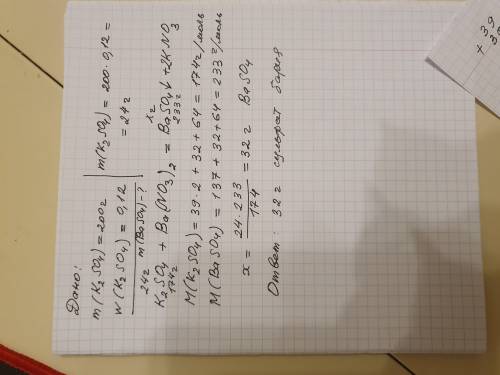 Дано:
m(K₂SO₄) = 200г
w(K₂SO₄) = 0,12
m(BaSO₄) - ?
m(K₂SO₄) = 200·0,12 =
= 24г
24г xг
K₂SO₄ + Ba(NO₃)₂ = BaSO₄↓ + 2KNO₃
174г 233г
M(K₂SO₄) = 39·2 + 32 + 64 = 174г/моль
M(BaSO₄) = 137 + 32 + 64 = 233г/моль
x = 24·233 / 174 = 32г BaSO₄
Ответ: 32г сульфат бария
× 39